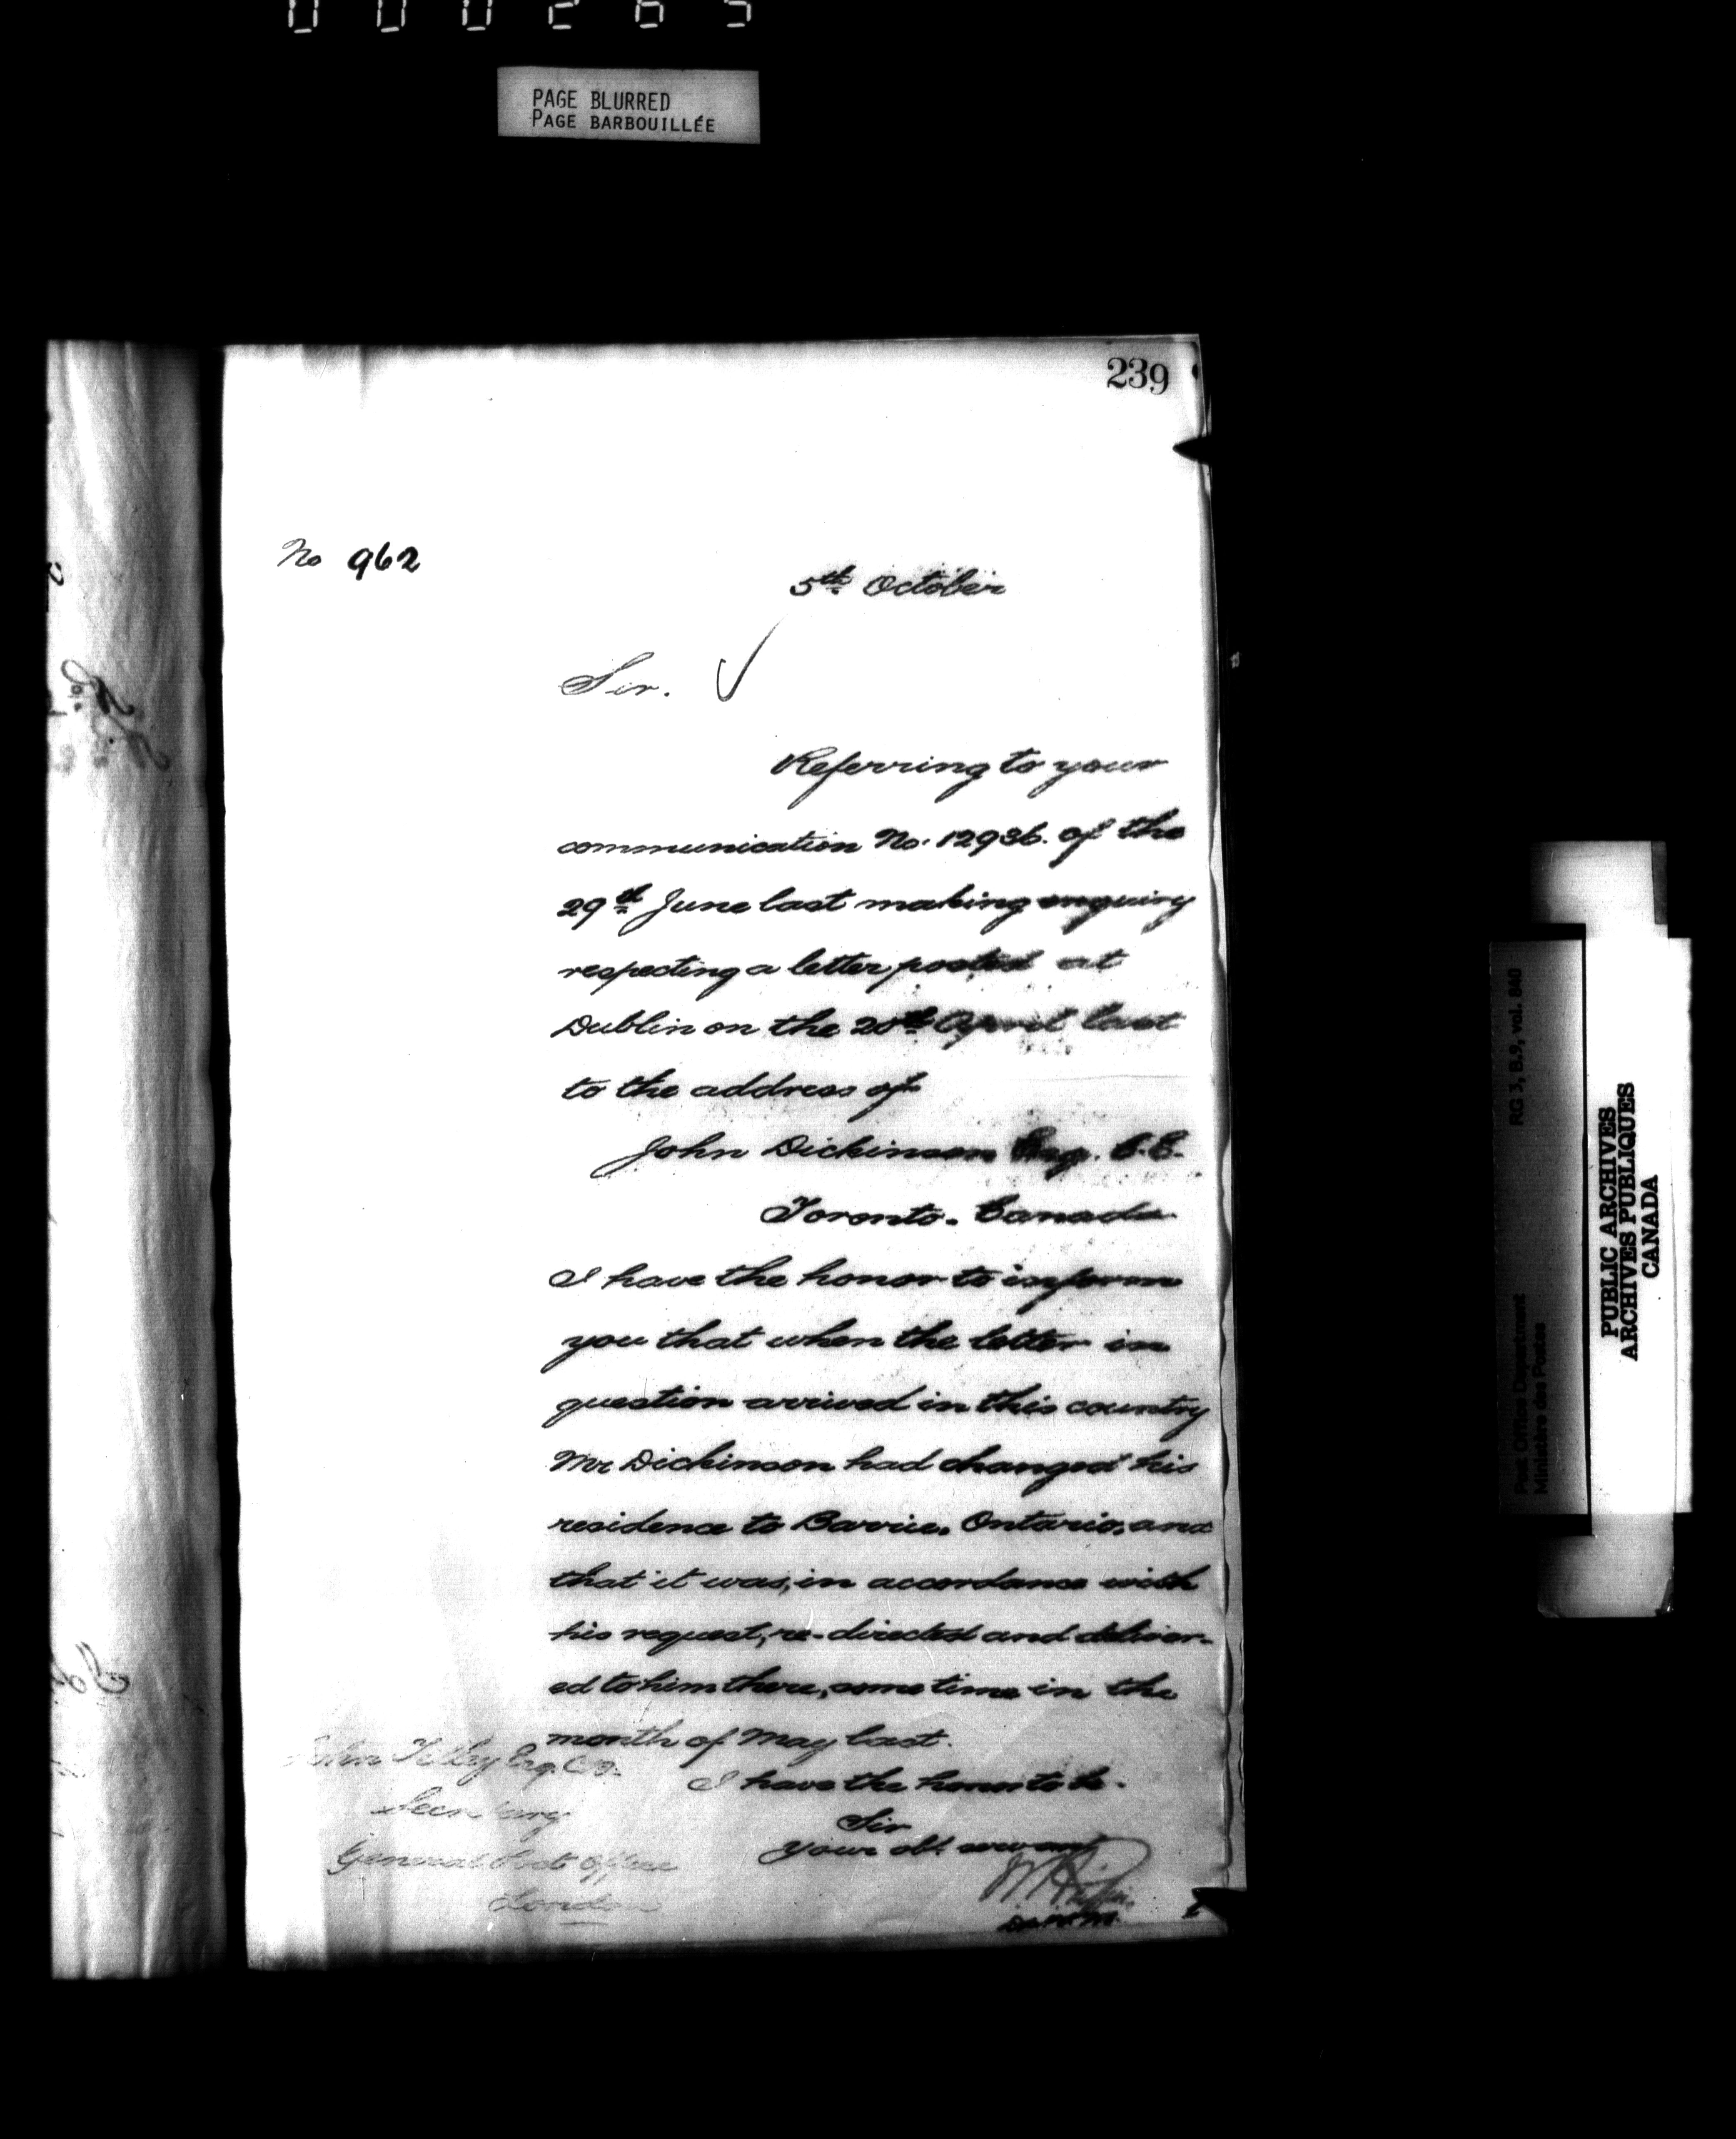 000265
PAGE BLURRED
PAGE BARBOUILLÉE
239
No 962
5th October
Sir.
Referring to your
communication No. 12936. of the
29th June last making enquiry
respecting a letter posted at
Dublin on the 20th April last
to the address of
John Dickinson Esq. C.E.
Toronto. Canada
I have the honor to inform
you that when the letter in
question arrived in this country
Mr Dickinson had changed his
residence to Barrie, Ontario, and
that it was, in accordance with
his request, re-directed and deliver-
ed to him there, some time in the
month of May last.
I have the honor to be.
Sir
your obt. servant
D.P.M.G.
John Tilley Esq. C.B.
Secretary
General Post Office
London
RG 3, B.9, vol. 840
Post Office Department
Ministère des Postes
PUBLIC ARCHIVES
ARCHIVES PUBLIQUES
CANADA